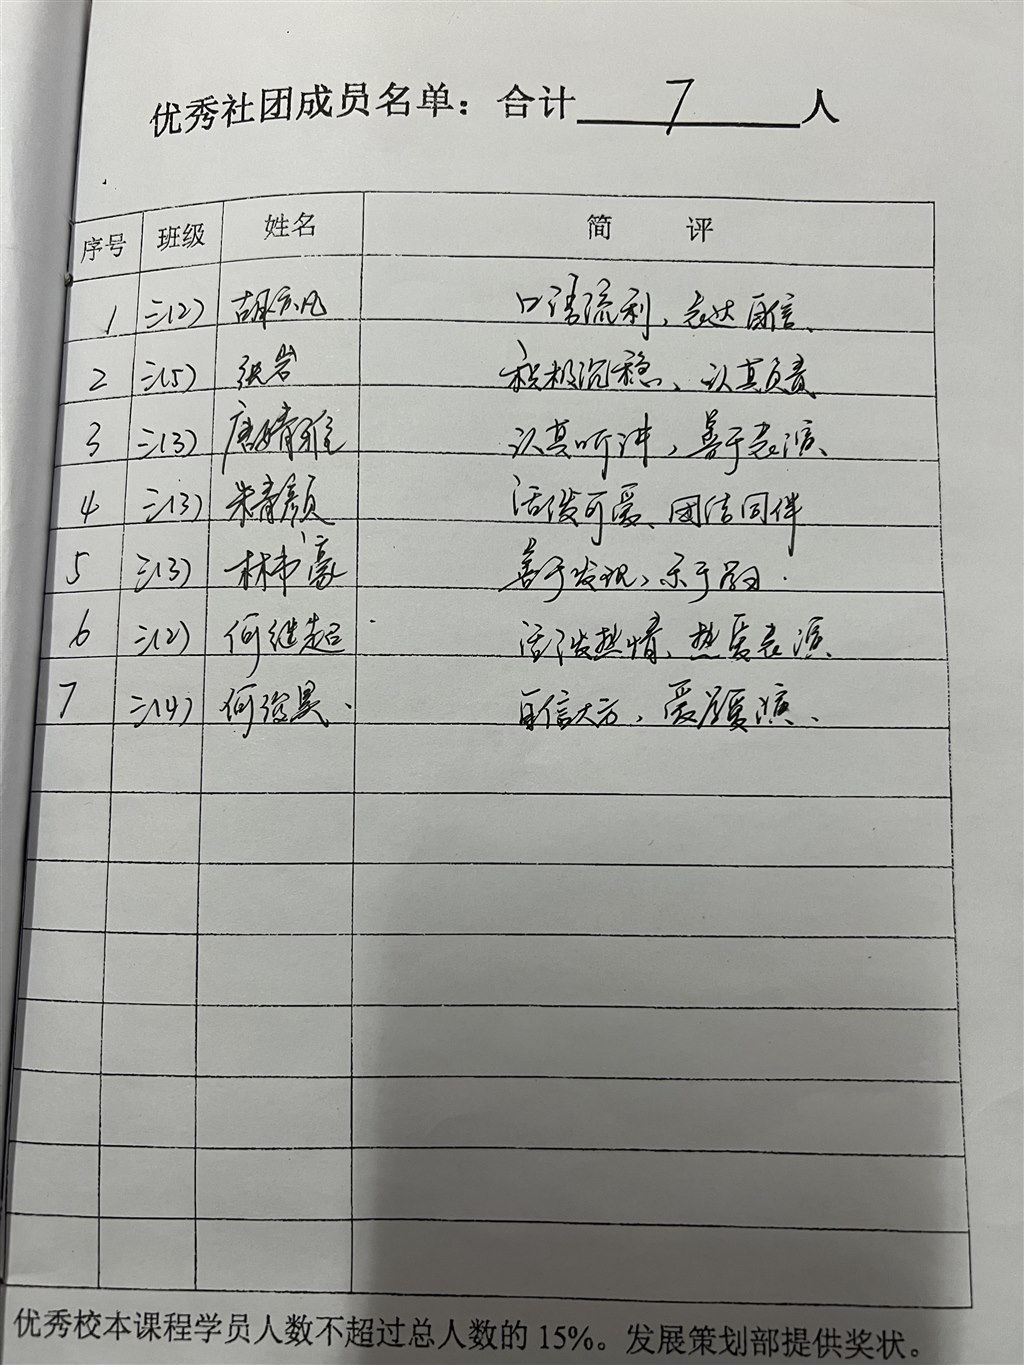 优秀社团成员名单：合计 7 人
序号 班级 姓名 简 评
1 三(2) 胡亦凡 口语流利、表达自信、
2 三(5) 张岩 积极沉稳、认真负责
3 三(3) 唐婧雅 认真听讲，善于表演、
4 三(3) 朱青颜 活泼可爱、团结同伴
5 三(3) 林韦豪 善于发现、乐于
6 三(2) 何继超 活泼热情、热爱表演、
7 三(4) 何 昊 自信大方、爱 爱演、
优秀校本课程学员人数不超过总人数的 15%。发展策划部提供奖状。